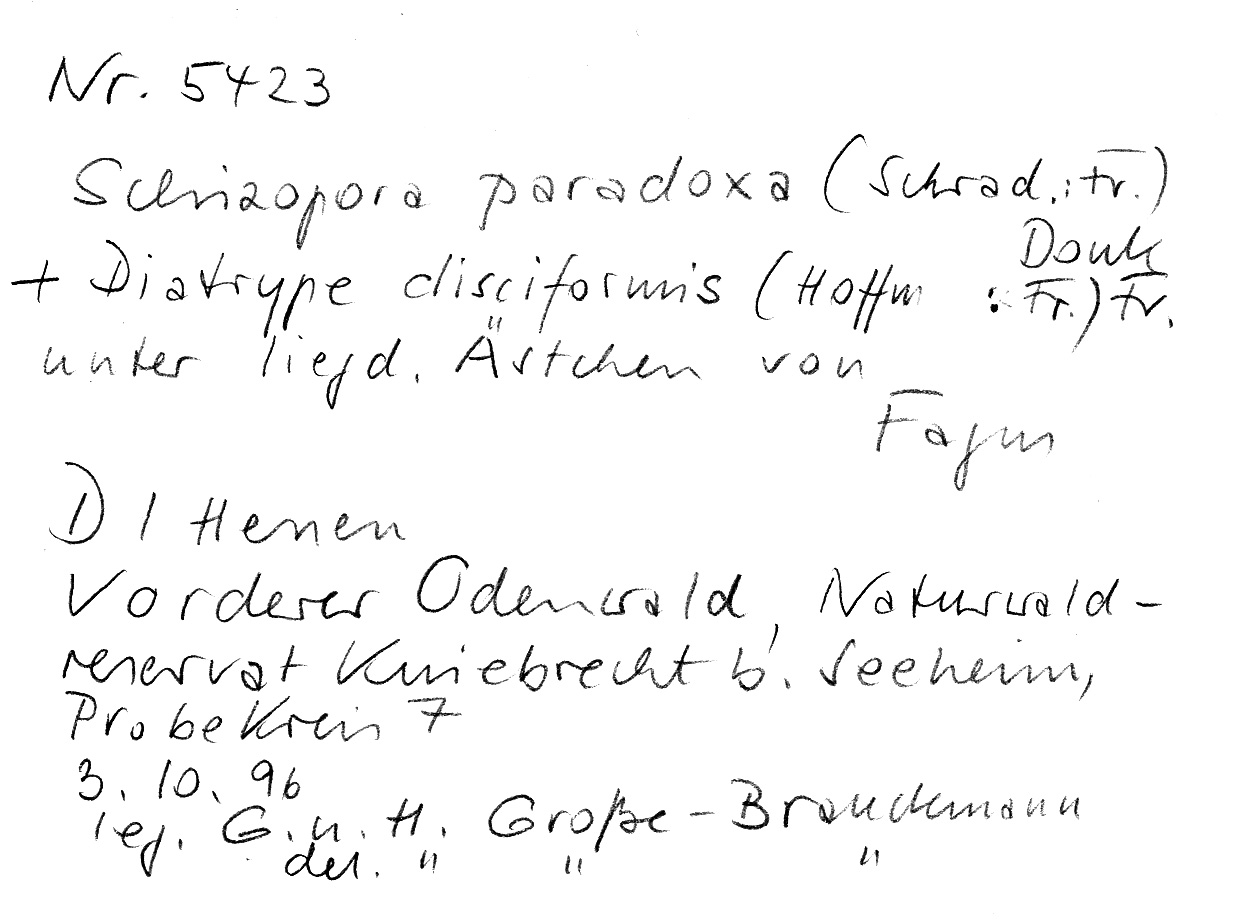 Nr. 5423
Schizopora paradoxa (Schrad.: Fr.)
Donk
+ Diatrype disciformis (Hoffm : Fr.) Fr.
unter liegd. Ästchen von
Fagus
D / Hessen
Vorderer Odenwald, Naturwald-
reservat Kniebrecht b. Seeheim,
Probekreis 7
3. 10. 96
leg. G. u. H. Große-Brauckmann
det. " " "